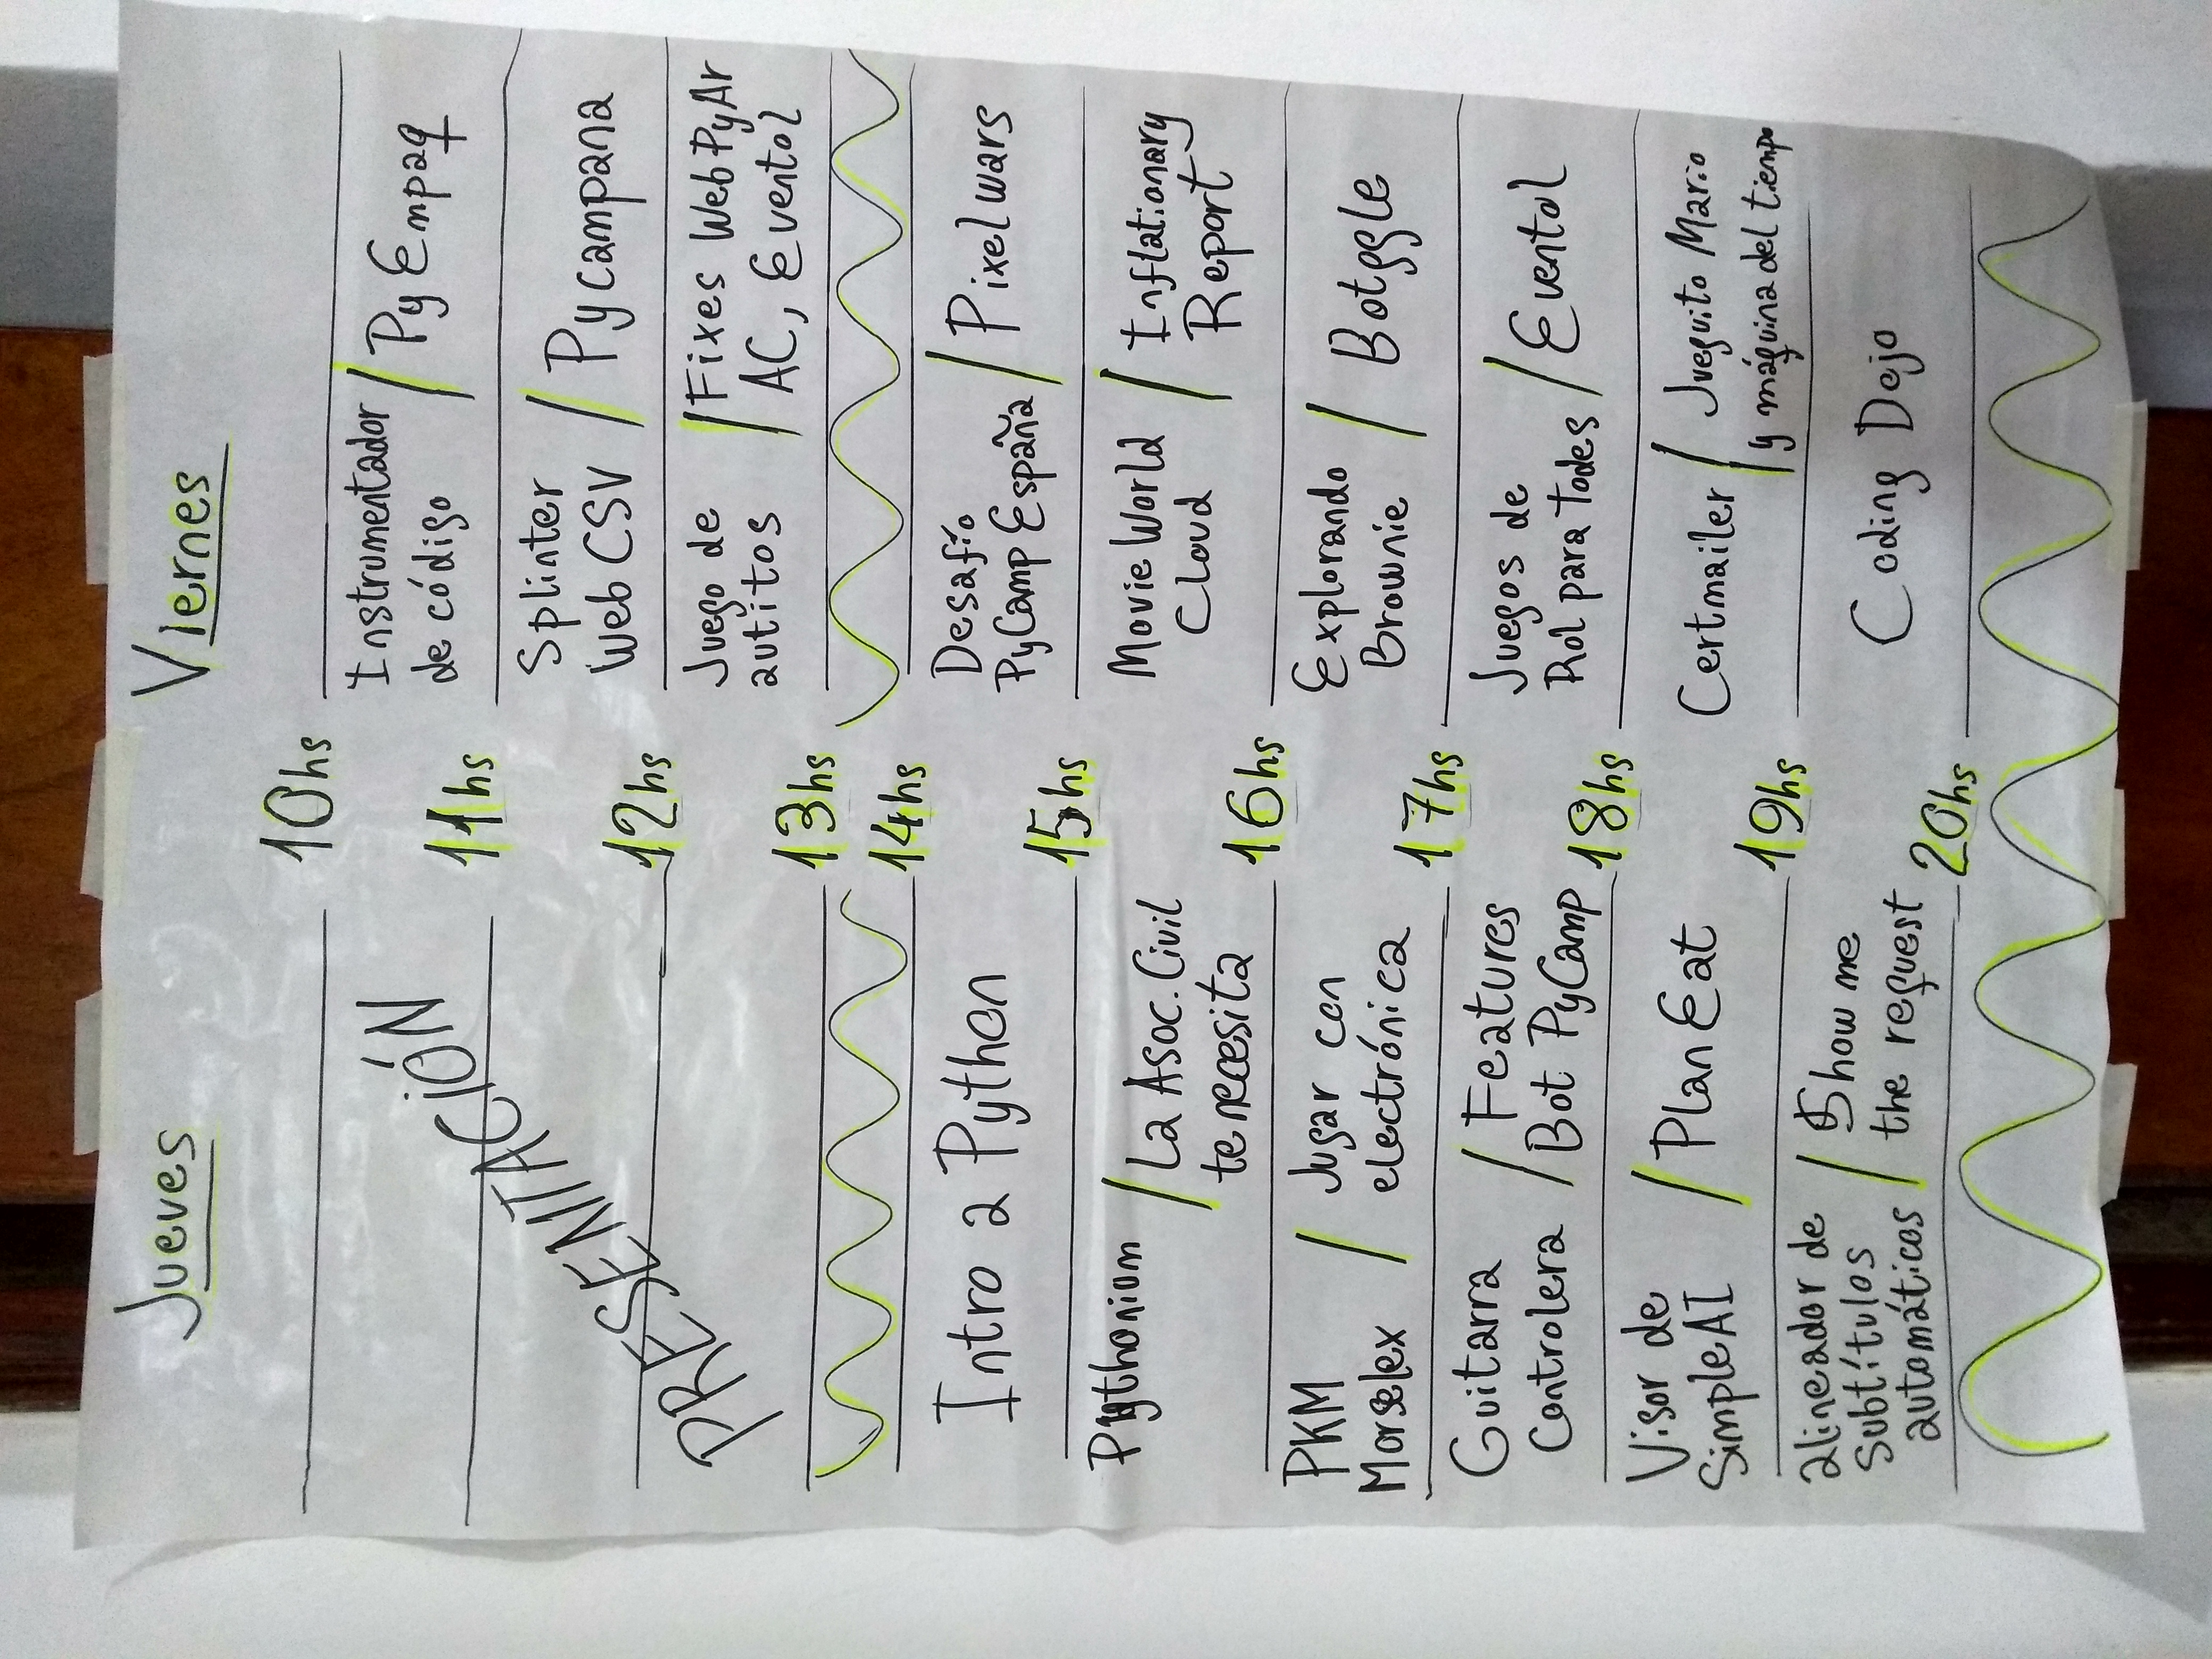 Jueves
Viernes
10hs
PRESENTACIÓN
Instrumentador
de código
/ PyEmpaq
11hs
Splinter
Web CSV
/ Pycampana
12hs
Juego de
autitos
/ Fixes Web PyAr
AC, Eventol
13hs
14hs
Intro a Python
Desafío
PyCamp España
/ Pixelwars
15hs
Pythonium
/ La Asoc. Civil
te necesita
Movie World
Cloud
/ Inflationary
Report
16hs
PKM
Morselex
/ Jugar con
electrónica
Explorando
Brownie
/ Botggle
17hs
Guitarra
Controlera
/ Features
Bot PyCamp
Juegos de
Rol para Todes
/ Eventol
18hs
Visor de
SimpleAI
/ PlanEat
Certmailer
/ Jueguito Mario
y máquina del tiempo
19hs
alineador de
subtítulos
automáticos
/ Show me
the request
Coding Dojo
20hs